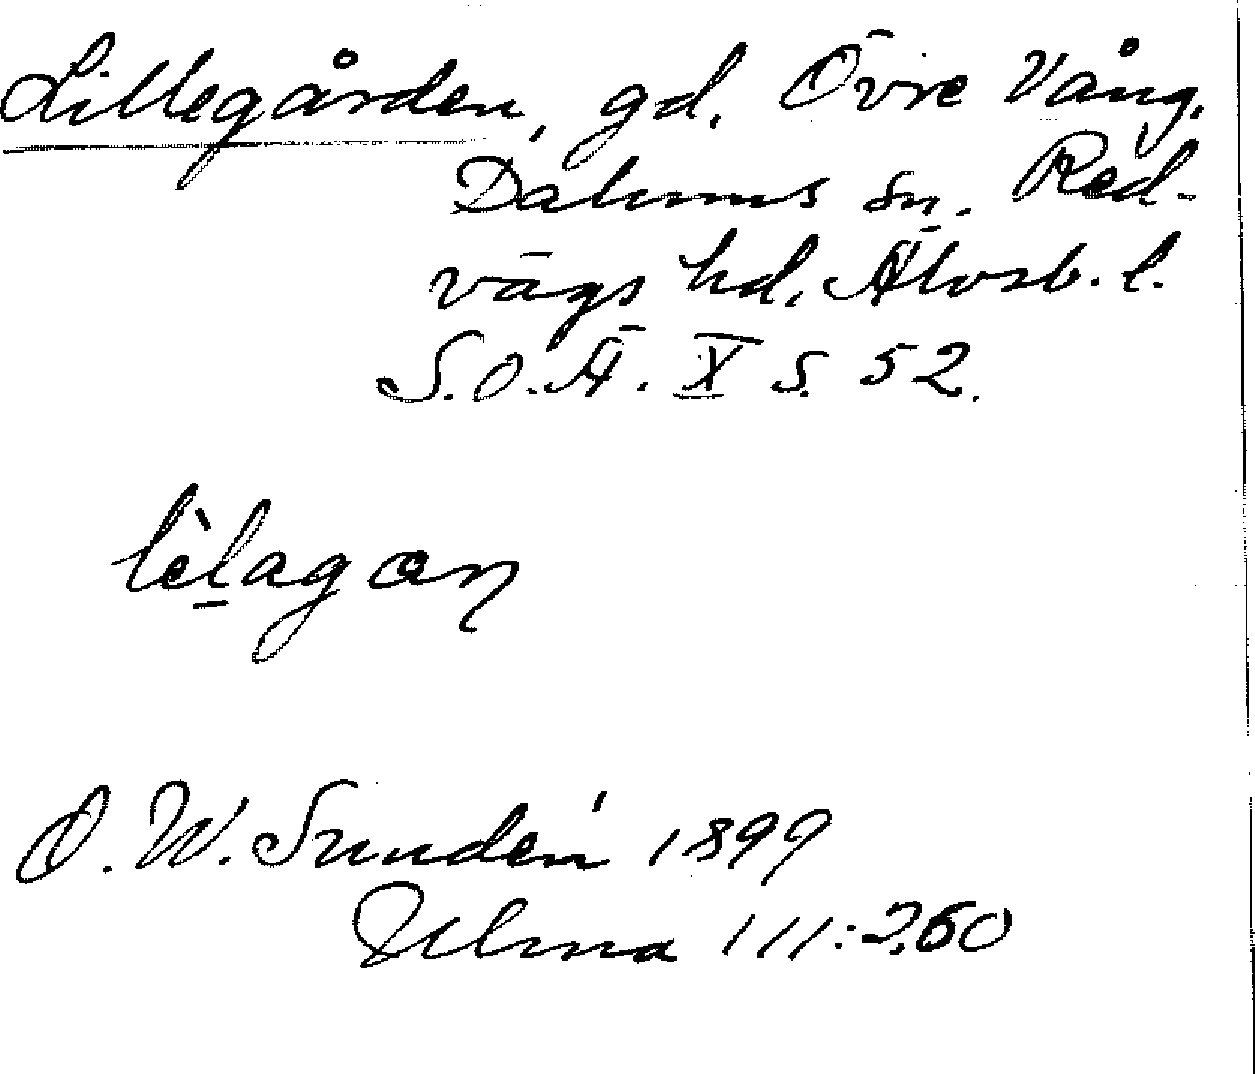 Lillegården, gd. Övre Vång,
Dalums sn. Red-
vägs hd. Älvsb. l.
S.O.Ä. X s. 52.
lèlagaɳ
O. W. Sundén 1899
Ulma 111:260